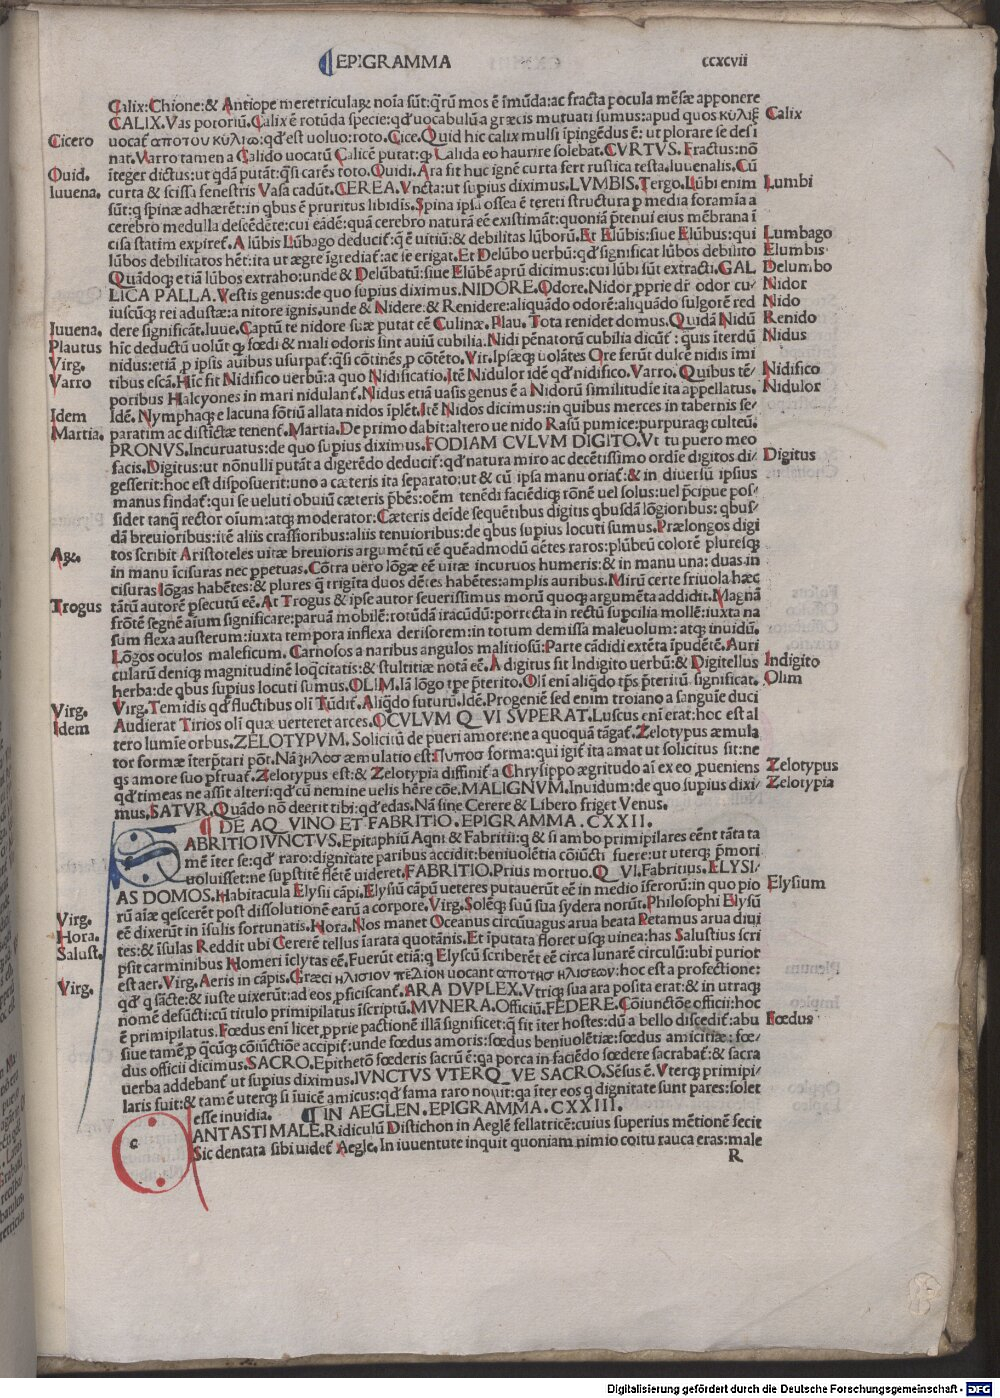 EPIGRAMMA ccxcvii
Calix:Chione:& Antiope meretriculaꝝ noīa sūt:qͬrū mos ē īmūda:ac fracta pocula mēsæ apponere
CALIX. Vas potoriū.Calix ē rotūda specie:qd' uocabulū a græcis mutuati sumus:apud quos κύλιξ
Calix
Cicero
uocat̄ απο του κυλιω:qd' est uoluo:roto.Cice.Quid hic calix mulsi īpingēdus ē: ut plorare se desi
nat.Varro tamen a Calido uocatū Calicē putat:ꝙ Calida eo haurire solebat.CVRTVS.Fractus:nō
Ouid.
īteger dictus:ut qdā putāt:q̄si carēs toto.Quidi.Ara fit huc ignē curta fert rustica testa.Iuuenalis.Cū
Iuuena.
curta & scissa fenestris Vasa cadūt.CEREA.Vncta:ut supius diximus.LVMBIS.Tergo.Lūbi enim
Lumbi
sūt:q spinæ adhærēt:in qbus ē pruritus libidis.Spina ipsa ossea ē tereti structura p media foramīa a
cerebro medulla descēdēte:cui eādē:quā cerebro naturā eē existimāt:quoniā p̄tenui eius mēbrana ī
cisa statim expiret.A lūbis Lūbago deducit̄:q̄ ē uitiū:& debilitas lūborū.Et Elūbis:siue Elūbus:qui
Lumbago
lūbos debilitatos hēt:ita ut ægre īgrediat̄:ac se erigat.Et Delūbo uerbū:qd' significat lūbos debilito
Elumbis
Quādoqȝ etiā lūbos extraho:unde & Delūbatū:siue Elūbē aprū dicimus:cui lūbi sūt extracti.GAL
Delumbo
LICA PALLA.Vestis genus:de quo supius diximus.NIDORE.Odore.Nidor pprie dr̄ odor cu/
Nidor
iuscūqȝ rei adustæ:a nitore ignis.unde & Nidere:& Renidere:aliquādo odorē:aliquādo fulgorē red
Nido
Iuuena.
dere significāt.Iuue.Captū te nidore suæ putat eē Culinæ.Plau.Tota renidet domus.Quidā Nidū
Renido
Plautus
hīc deductū uolūt ꝙ fœdi & mali odoris sint auiū cubilia.Nidi pēnatorū cubilia dicūt̄:quis īterdū
Nidus
Virg.
nidus:etiā p ipsis auibus usurpat̄:q̄si cōtinēs p cōtēto.Vir.Ipsæqȝ uolātes Ore ferūt dulcē nidis imi
Varro
tibus escā.Hīc fit Nidifico uerbū:a quo Nidificatio.Itē Nidulor idē qd' nidifico.Varro.Quibus tē/
Nidifico
poribus Halcyones in mari nidulant̄.Nidus etiā uasis genus ē a Nidorū similitudīe ita appellatus.
Nidulor
Idem
Idē.Nymphaqȝ e lacuna fōtiū allata nidos īplēt.Itē Nidos dicimus:in quibus merces in tabernis se/
Martia.
paratim ac distīctæ tenent̄.Martia.De primo dabit:altero ue nido Rasū pumice:purpuraqȝ cultū.
PRONVS.Incuruatus:de quo supius diximus.FODIAM CVLVM DIGITO.Vt tu puero meo
facis.Digitus:ut nōnulli putāt a digerēdo deducit̄:qd' natura miro ac decētissimo ordīe digitos di/
Digitus
gesserit:hoc est disposuerit:uno a cæteris ita separato:ut & cū ipsa manu oriat̄:& in diuersū ipsius
manus findat̄:qui se ueluti obuiū cæteris p̄bēs:oēm tenēdi faciēdiqȝ rōnē uel solus:uel p̄cipue pos/
sidet tanq̄ rector oīum:atqȝ moderator:Cæteris deīde sequētibus digitis qbusdā lōgioribus: qbus/
dā breuioribus:itē aliis crassioribus:aliis tenuioribus:de qbus supius locuti sumus.Prælongos digi
Aꝝ.
tos scribit Aristoteles uitæ breuioris argumētū eē quēadmodū dētes raros:plūbeū colorē pluresqȝ
in manu īcisuras nec ppetuas.Cōtra uero lōgæ eē uitæ incuruos humeris:& in manu una: duas in
cisuras lōgas habētes:& plures q̄ trigīta duos dētes habētes:amplis auribus.Mirū certe friuola hæc
Trogus
tātū autorē psecutū eē.At Trogus & ipse autor seuerissimus morū quoqȝ argumēta addidit.Magnā
frōtē segnē aīum significare:paruā mobilē:rotūdā iracūdū:porrecta in rectū supcilia mollē:iuxta na
sum flexa austerum:iuxta tempora inflexa derisorem:in totum demissa maleuolum: atqȝ inuidū.
Lōgos oculos maleficum. Carnosos a naribus angulos malitiosū:Parte cādidi extēta īpudētē.Auri
cularū deniqȝ magnitudinē loq̄citatis:& stultitiæ notā eē.A digitus fit Indigito uerbū:& Digitellus
Indigito
herba:de qbus supius locuti sumus.OLIM.Iā lōgo tpe p̄terito.Oli eni aliq̄do tp̄s p̄teritū significat.
Olim
Virg.
Virg.Temidis qd' fluctibus oli Tūdit̄.Aliq̄do futurū.Idē.Progeniē sed enim troiano a sanguīe duci
Idem
Audierat Tirios oli quæ uerteret arces.OCVLVM Q_VI SVPERAT.Luscus eni erat:hoc est al
tero lumīe orbus.ZELOTYPVM. Solicitū de pueri amore:ne a quoquā tāgat̄.Zelotypus æmula
tor formæ īterp̄tari pōt.Nā ζηλοσ æmulatio est:Πυποσ forma:qui igit̄ ita amat ut solicitus sit:ne
qs amore suo pfruat̄.Zelotypus est:& Zelotypia diffinit̄ a Chrysippo ægritudo aī ex eo pueniens
Zelotypus
qd' timeas ne assit alteri:qd' cū nemine uelis hēre cōe.MALIGNVM.Inuidum:de quo supius dixi/
Zelotypia
mus.SATVR.Quādo nō deerit tibi:qd' edas.Nā sine Cerere & Libero friget Venus.
DE AQ_VINO ET FABRITIO.EPIGRAMMA.CXXII.
ABRITIO IVNCTVS.Epitaphiū Aqni & Fabritii:q & si ambo primipilares eēnt tāta ta
mē īter se:qd' raro:dignitate paribus accidit:beniuolētia cōiūcti fuere:ut uterqȝ p̄mori
uoluisset:ne supstitē flētē uideret.FABRITIO.Prius mortuo.Q_VI.Fabritius.ELYSI/
AS DOMOS.Habitacula Elysii cāpi.Elysiū cāpū ueteres putauerūt eē in medio īferorū:in quo pio
Elysium
rū aīæ qescerēt post dissolutionē earū a corpore.Virg.Solēqȝ suū sua sydera norūt.Philosophi Elysū
Virg.
eē dixerūt in īsulis fortunatis.Hora.Nos manet Oceanus circūuagus arua beata Petamus arua diui
Hora.
tes:& īsulas Reddit ubi Cererē tellus īarata quotānis.Et īputata floret usqȝ uinea:has Salustius scri
Salust.
psit carminibus Homeri īclytas eē.Fuerūt etiā:q Elyscū scriberēt eē circa lunarē circulū:ubi purior
est aer.Virg.Aeris in cāpis.Græci ηλισιον πεδιον uocant απο της ηλισεων:hoc est a profectione:
Virg.
qd' q sācte:& iuste uixerūt:ad eos pficiscant̄.ARA DVPLEX.Vtriqȝ sua ara posita erat:& in utraqȝ
nomē defūcti:cū titulo primipilatus īscriptū.MVNERA.Officiū.FEDERE.Cōiunctōe officii:hoc
ē primipilatus.Fœdus eni licet pprie pactionē illā significet:q̄ fit īter hostes:dū a bello discedit̄:abu
Fœdus
siue tamē p q̄cūqȝ cōiūctiōe accipit̄:unde fœdus amoris:fœdus beniuolētiæ:fœdus amicitiæ: fœ/
dus officii dicimus.SACRO.Epithetō fœderis sacrū ē:qa porca in faciēdo fœdere sacrabat̄:& sacra
uerba addebant̄ ut supius diximus.IVNCTVS VTERQ_VE SACRO.Sēsus ē.Vterqȝ primipi/
laris fuit:& tamē uterqȝ si iuicē amicus:qd' fama raro nouit:qa īter eos q dignitate sunt pares:solet
esse inuidia. IN AEGLEN.EPIGRAMMA.CXXIII.
c
ANTASTI MALE.Ridiculū Distichon in Aeglē fellatricē:cuius superius mētionē fecit
Sic dentata sibi uidet̄ Aegle.In iuuentute inquit quoniam nimio coitu rauca eras:male
R
Digitalisierung gefördert durch die Deutsche Forschungsgemeinschaft - DFG